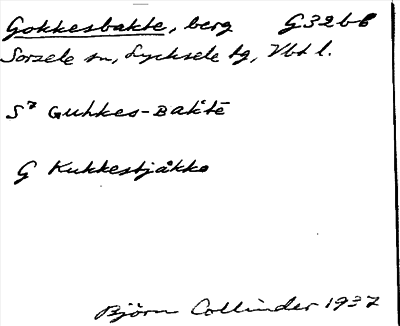 Gokkesbakte, berg G32b6
Sorsele sn, Lycksele tg, Vbt l.
S7 Guhkes-Bakte
G Kukkestjåkko
Björn Collinder 1937